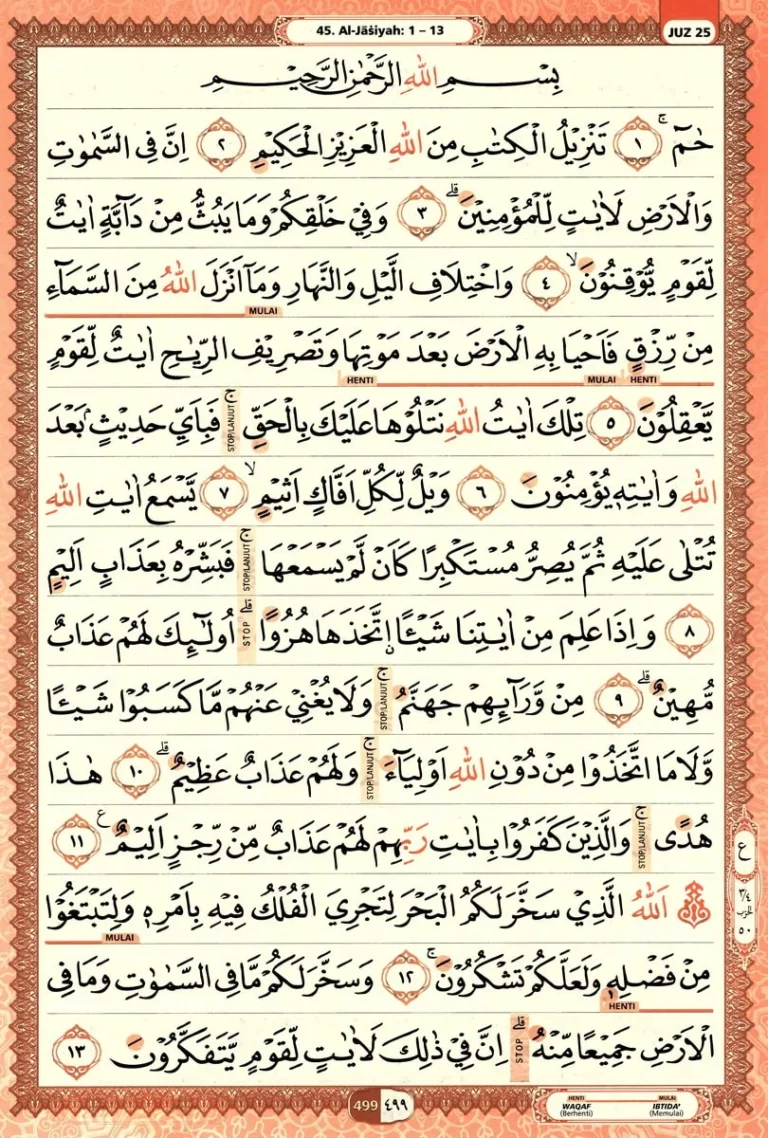 45. Al-Jāṡiyah: 1 – 13
JUZ 25
بِسْــمِ اللّٰهِ الرَّحْمٰنِ الرَّحِيْــمِ
حٰمۤ ۚ ١ تَنْزِيْلُ الْكِتٰبِ مِنَ اللّٰهِ الْعَزِيْزِ الْحَكِيْمِ ٢ اِنَّ فِى السَّمٰوٰتِ
وَالْاَرْضِ لَاٰيٰتٍ لِّلْمُؤْمِنِيْنَۗ ٣ وَفِيْ خَلْقِكُمْ وَمَا يَبُثُّ مِنْ دَاۤبَّةٍ اٰيٰتٌ
لِّقَوْمٍ يُّوْقِنُوْنَۙ ٤ وَاخْتِلَافِ الَّيْلِ وَالنَّهَارِ وَمَآ اَنْزَلَ اللّٰهُ مِنَ السَّمَاۤءِ
MULAI
مِنْ رِّزْقٍ فَاَحْيَا بِهِ الْاَرْضَ بَعْدَ مَوْتِهَا وَتَصْرِيْفِ الرِّيٰحِ اٰيٰتٌ لِّقَوْمٍ
HENTI MULAI HENTI
يَّعْقِلُوْنَ ٥ تِلْكَ اٰيٰتُ اللّٰهِ نَتْلُوْهَا عَلَيْكَ بِالْحَقِّۚ STOP/LANJUT فَبِاَيِّ حَدِيْثٍۢ بَعْدَ
اللّٰهِ وَاٰيٰتِهٖ يُؤْمِنُوْنَ ٦ وَيْلٌ لِّكُلِّ اَفَّاكٍ اَثِيْمٍۙ ٧ يَّسْمَعُ اٰيٰتِ اللّٰهِ
تُتْلٰى عَلَيْهِ ثُمَّ يُصِرُّ مُسْتَكْبِرًا كَاَنْ لَّمْ يَسْمَعْهَاۚ STOP/LANJUT فَبَشِّرْهُ بِعَذَابٍ اَلِيْمٍ
٨ وَاِذَا عَلِمَ مِنْ اٰيٰتِنَا شَيْـًٔا ۨاتَّخَذَهَا هُزُوًاۗ STOP اُولٰۤىِٕكَ لَهُمْ عَذَابٌ
مُّهِيْنٌۗ ٩ مِنْ وَّرَاۤىِٕهِمْ جَهَنَّمُۚ STOP/LANJUT وَلَا يُغْنِيْ عَنْهُمْ مَّا كَسَبُوْا شَيْـًٔا
وَّلَا مَا اتَّخَذُوْا مِنْ دُوْنِ اللّٰهِ اَوْلِيَاۤءَۚ STOP/LANJUT وَلَهُمْ عَذَابٌ عَظِيْمٌۗ ١٠ هٰذَا
هُدًىۚ STOP/LANJUT وَالَّذِيْنَ كَفَرُوْا بِاٰيٰتِ رَبِّهِمْ لَهُمْ عَذَابٌ مِّنْ رِّجْزٍ اَلِيْمٌ ࣖ ١١
اَللّٰهُ الَّذِيْ سَخَّرَ لَكُمُ الْبَحْرَ لِتَجْرِيَ الْفُلْكُ فِيْهِ بِاَمْرِهٖ وَلِتَبْتَغُوْا
MULAI
مِنْ فَضْلِهٖ وَلَعَلَّكُمْ تَشْكُرُوْنَۚ ١٢ وَسَخَّرَ لَكُمْ مَّا فِى السَّمٰوٰتِ وَمَا فِى
HENTI
الْاَرْضِ جَمِيْعًا مِّنْهُۗ STOP اِنَّ فِيْ ذٰلِكَ لَاٰيٰتٍ لِّقَوْمٍ يَّتَفَكَّرُوْنَ ١٣
ع
٣/٤
الحزب
٥٠
499 ٤٩٩
HENTI MULAI
WAQAF IBTIDA'
(Berhenti) (Memulai)